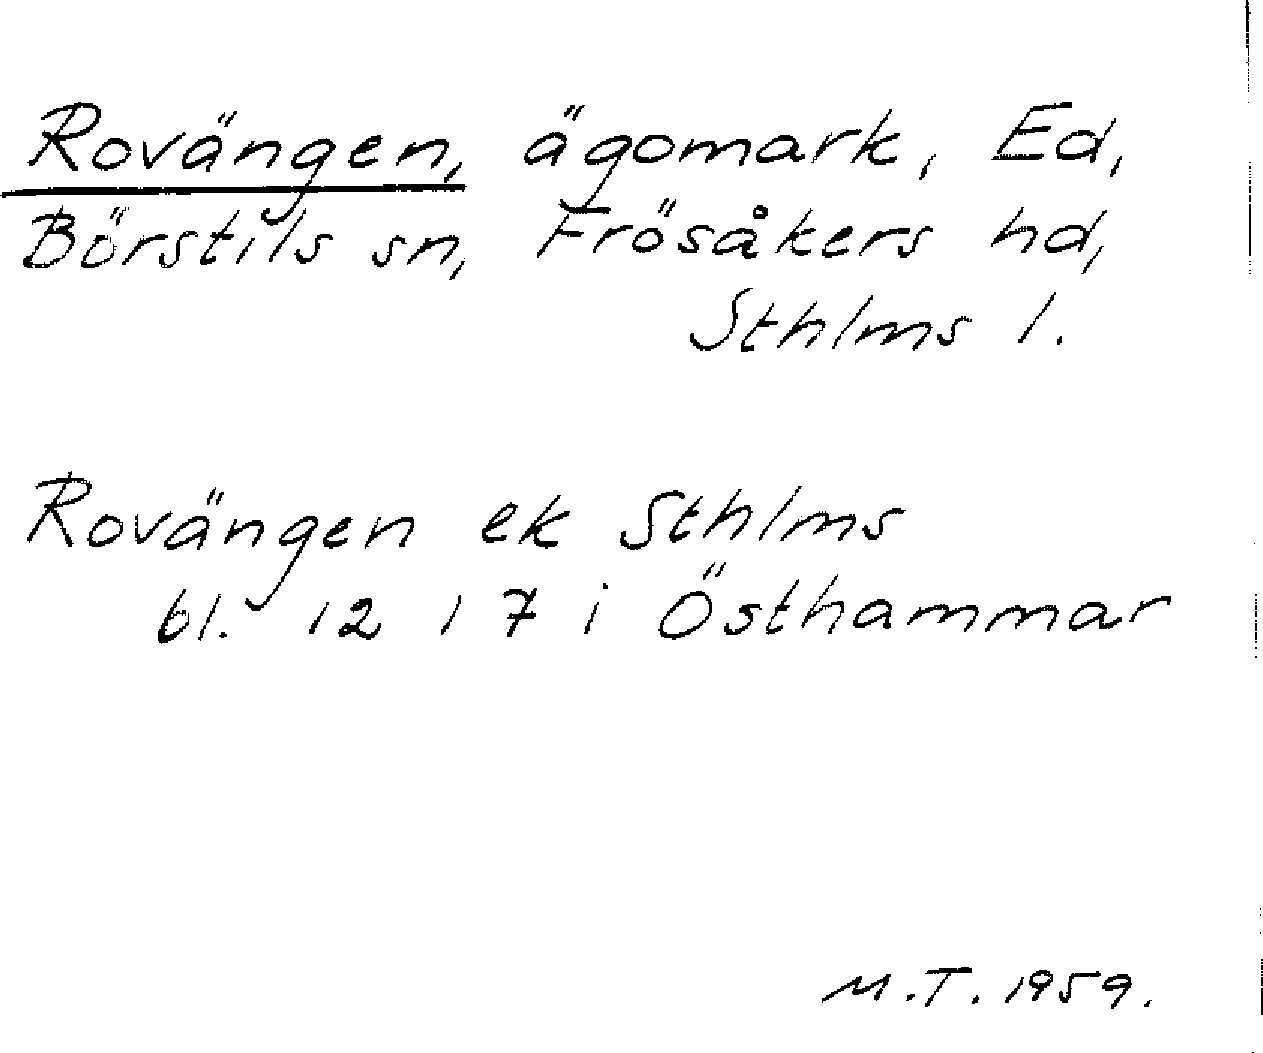 Rovängen, ägomark, Ed,
Börstils sn, Frösåkers hd,
Sthlms l.
Rovängen ek Sthlms
bl. 12 1 7 i Östhammar
M.T. 1959.